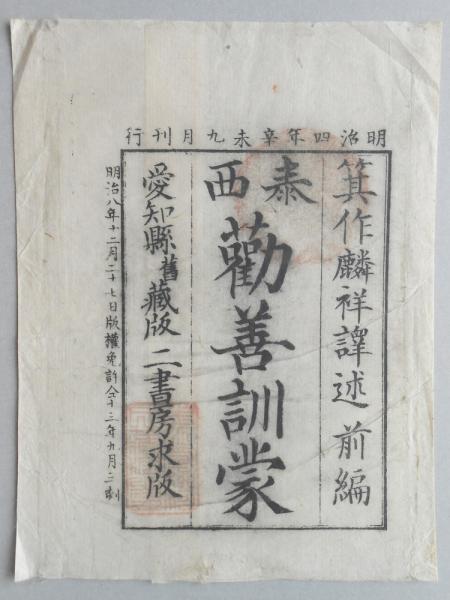 明治四年辛未九月刊行
箕作麟祥譯述 前編
泰西
勸善訓蒙
愛知縣舊藏版 二書房求版
明治八年十二月二十七日版權免許仝十三年九月三刻